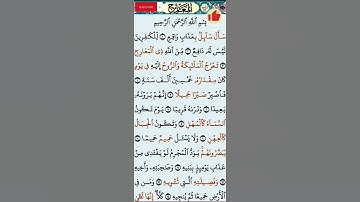 المعارج
بِسْمِ اللَّهِ الرَّحْمَٰنِ الرَّحِيمِ
سَأَلَ سَآئِلٌۢ بِعَذَابٍ وَاقِعٍ ۝ لِّلْكَٰفِرِينَ
لَيْسَ لَهُۥ دَافِعٌ ۝ مِّنَ ٱللَّهِ ذِى ٱلْمَعَارِجِ
۝ تَعْرُجُ ٱلْمَلَٰٓئِكَةُ وَٱلرُّوحُ إِلَيْهِ فِى يَوْمٍ
كَانَ مِقْدَارُهُۥ خَمْسِينَ أَلْفَ سَنَةٍ ۝
فَٱصْبِرْ صَبْرًا جَمِيلًا ۝ إِنَّهُمْ يَرَوْنَهُۥ
بَعِيدًا ۝ وَنَرَىٰهُ قَرِيبًا ۝ يَوْمَ تَكُونُ
ٱلسَّمَآءُ كَٱلْمُهْلِ ۝ وَتَكُونُ ٱلْجِبَالُ
كَٱلْعِهْنِ ۝ وَلَا يَسْـَٔلُ حَمِيمٌ حَمِيمًا ۝
يُبَصَّرُونَهُمْ يَوَدُّ ٱلْمُجْرِمُ لَوْ يَفْتَدِى مِنْ
عَذَابِ يَوْمِئِذٍۭ بِبَنِيهِ ۝ وَصَٰحِبَتِهِۦ وَأَخِيهِ
۝ وَفَصِيلَتِهِ ٱلَّتِى تُـْٔوِيهِ ۝ وَمَن فِى
ٱلْأَرْضِ جَمِيعًا ثُمَّ يُنجِيهِ ۝ كَلَّآ إِنَّهَا لَظَىٰ